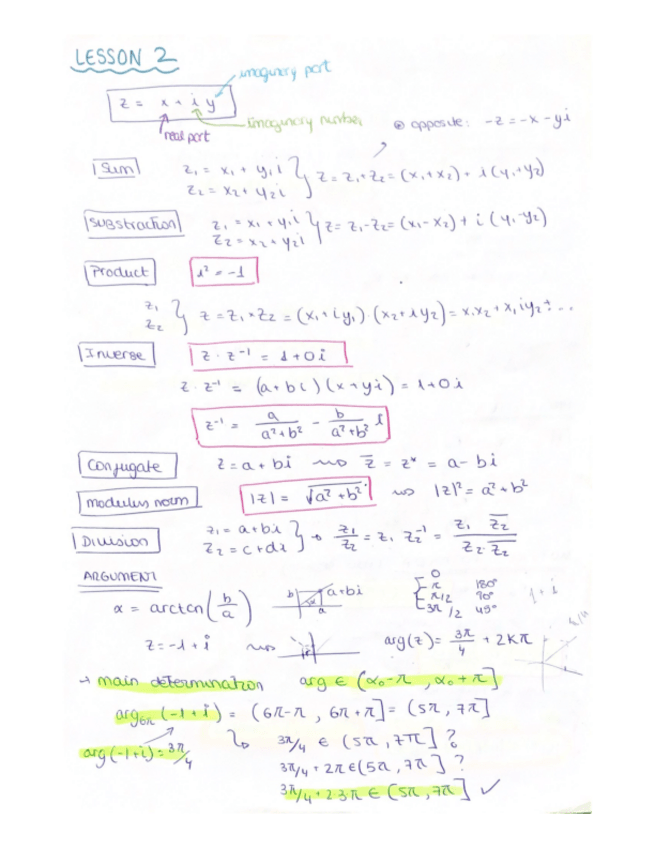 LESSON 2
imaginary part
z = x + i y
imaginary number
real part
⊙ opposite: -z = -x - yi
Sum
z₁ = x₁ + y₁i
z₂ = x₂ + y₂i
} z = z₁+z₂ = (x₁+x₂) + i(y₁+y₂)
SUBStraction
z₁ = x₁ + y₁i
z₂ = x₂ + y₂i
} z = z₁-z₂ = (x₁-x₂) + i(y₁-y₂)
Product
i² = -1
z₁
z₂
} z = z₁×z₂ = (x₁+iy₁)·(x₂+iy₂) = x₁x₂ + x₁iy₂ + ...
Inverse
z · z⁻¹ = 1+0i
z · z⁻¹ = (a+bi)(x+yi) = 1+0i
z⁻¹ = a/(a²+b²) - b/(a²+b²) i
Conjugate
z = a + bi ⇝ z̅ = z* = a - bi
modulus norm
|z| = √(a²+b²) ⇝ |z|² = a²+b²
Division
z₁ = a+bi
z₂ = c+di
} → z₁/z₂ = z₁ z₂⁻¹ = (z₁ z̅₂)/(z₂·z̅₂)
ARGUMENT
α = arctan(b/a)
b
a+bi
α
a
0
π 180°
π/2 90°
3π/2 45°
1+i
z = -1 + i ⇝
arg(z) = 3π/4 + 2Kπ
→ main determination arg ∈ (α₀-π, α₀+π]
arg₆π(-1+i) = (6π-π, 6π+π] = (5π, 7π]
arg(-1+i) = 3π/4
3π/4 ∈ (5π, 7π] ?
3π/4 + 2π ∈ (5π, 7π] ?
3π/4 + 2 3π ∈ (5π, 7π] ✓